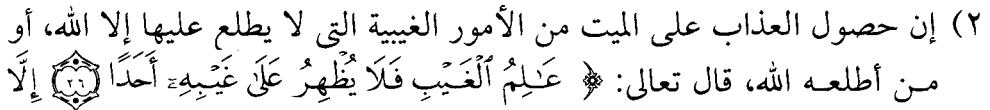 ٢) إن حصول العذاب على الميت من الأمور الغيبية التى لا يطلع عليها إلا الله، أو
من أطلعه الله، قال تعالى: ﴿ عَـٰلِمُ ٱلْغَيْبِ فَلَا يُظْهِرُ عَلَىٰ غَيْبِهِۦٓ أَحَدًا ﴿٢٦﴾ إِلَّا